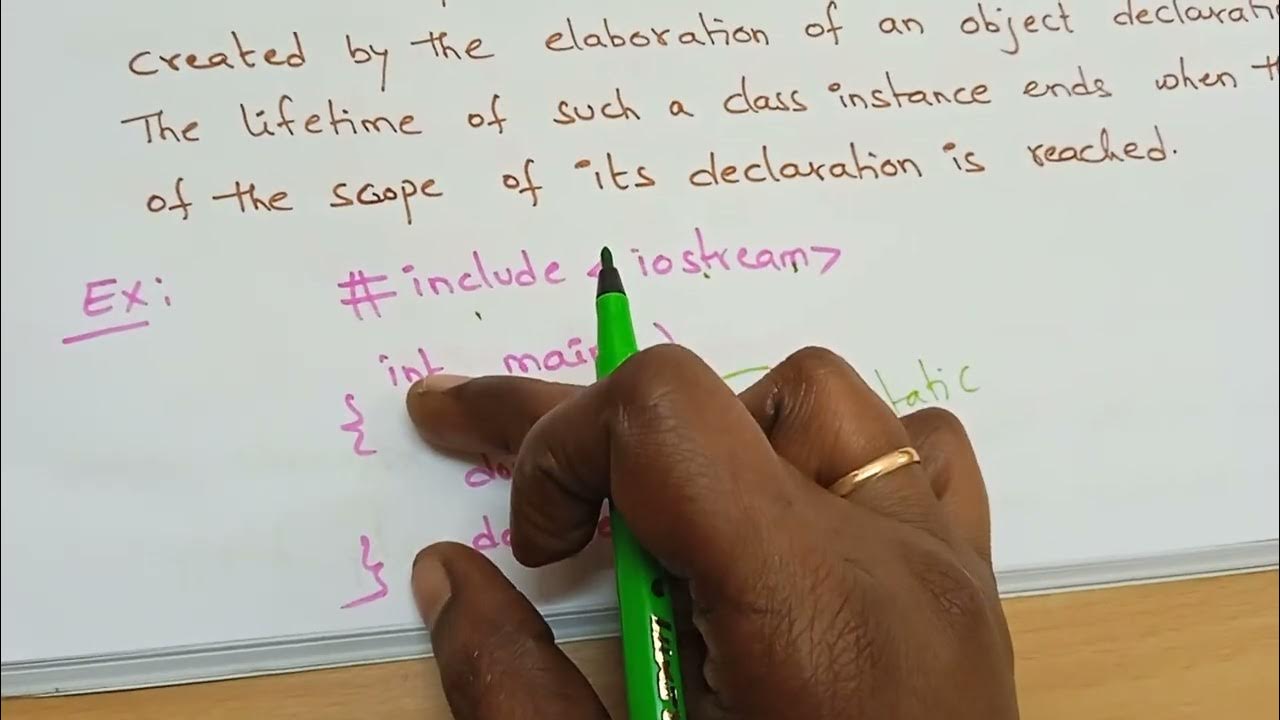 created by the elaboration of an object
The lifetime of such a class instance ends when
of the scope of its declaration is reached.
Ex: #include <iostream>
int
{
}